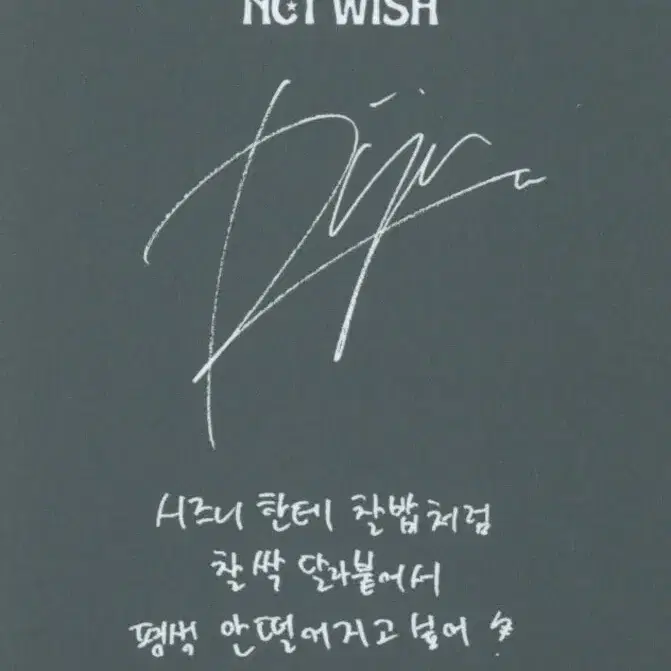 NCT WISH
Riku
시즈니 한테 찰밥처럼
찰싹 달라붙어서
평생 안떨어지고 싶어